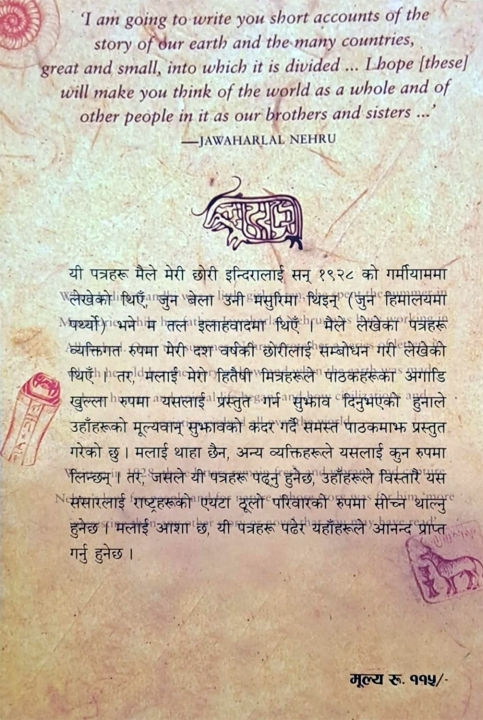 'I am going to write you short accounts of the
story of our earth and the many countries,
great and small, into which it is divided ... I hope [these]
will make you think of the world as a whole and of
other people in it as our brothers and sisters ...'
—JAWAHARLAL NEHRU
यी पत्रहरू मैले मेरी छोरी इन्दिरालाई सन् १९२८ को गर्मीयाममा
लेखेको थिएँ, जुन बेला उनी मसुरिमा थिइन् (जुन हिमालयमा
पर्थ्यो) भने म तल इलाहवादमा थिएँ । मैले लेखेका पत्रहरू
व्यक्तिगत रुपमा मेरी दश वर्षकी छोरीलाई सम्बोधन गरी लेखेको
थिएँ । तर, मलाई मेरो हितैषी मित्रहरूले पाठकहरूका अगाडि
खुल्ला रुपमा यसलाई प्रस्तुत गर्न सुझाव दिनुभएको हुनाले
उहाँहरूको मूल्यवान् सुझावको कदर गर्दै समस्त पाठकमाझ प्रस्तुत
गरेको छु । मलाई थाहा छैन, अन्य व्यक्तिहरूले यसलाई कुन रुपमा
लिन्छन् । तर, जसले यी पत्रहरू पढ्नु हुनेछ, उहाँहरूले विस्तारै यस
संसारलाई राष्ट्रहरूको एयटा ठूलो परिवारको रुपमा सोच्न थाल्नु
हुनेछ । मलाई आशा छ, यी पत्रहरू पढेर यहाँहरूले आनन्द प्राप्त
गर्नु हुनेछ ।
मूल्य रू. ११५/-